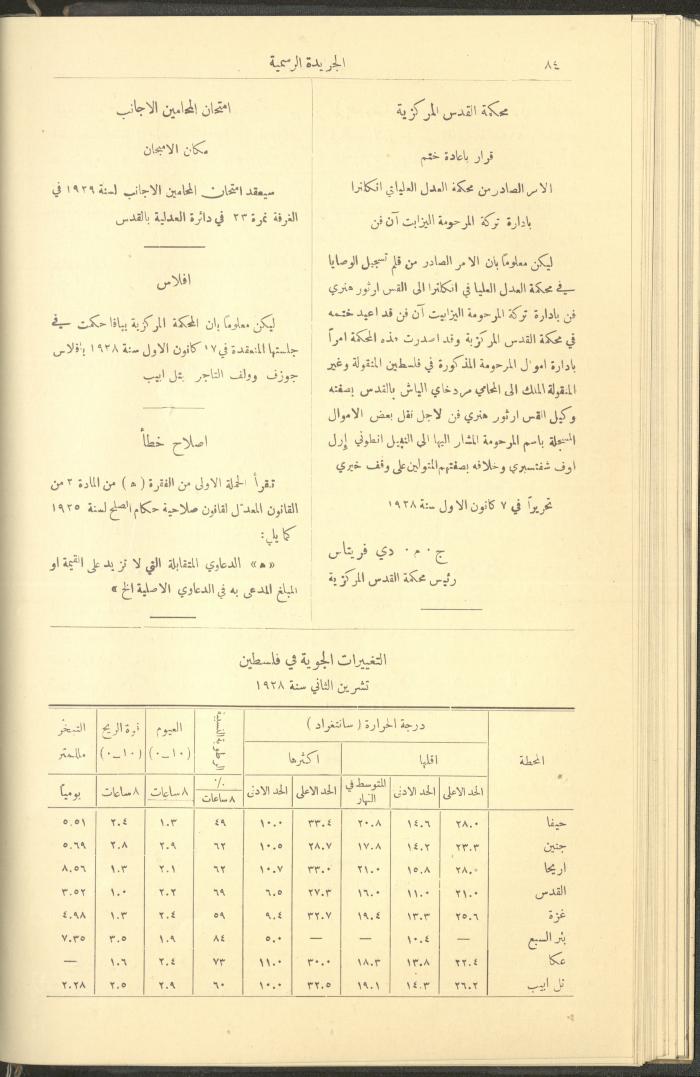 ٨٤
الجريدة الرسمية
محكمة القدس المركزية
قرار باعادة ختم
الامر الصادر من محكمة العدل العليا في انكلترا
بادارة تركة المرحومة اليزابت آن فن
ليكن معلوماً بان الامر الصادر من قلم تسجيل الوصايا
في محكمة العدل العليا في انكلترا الى القس ارثور هنري
فن بادارة تركة المرحومة اليزابيت آن فن قد اعيد ختمه
في محكمة القدس المركزية وقد اصدرت هذه المحكمة امراً
بادارة اموال المرحومة المذكورة في فلسطين المنقولة وغير
المنقولة الملك الى المحامي مردخاي الياش بالقدس بصفته
وكيل القس ارثور هنري فن لاجل نقل بعض الاموال
المسجلة باسم المرحومة المشار اليها الى النبيل انطوني إرل
اوف شفتسبري وخلافه بصفتهم المتولين على وقف خيري
تحريراً في ٧ كانون الاول سنة ١٩٣٨
ج ٠ م ٠ دي فريتاس
رئيس محكمة القدس المركزية
امتحان المحامين الاجانب
مكان الامتحان
سيعقد امتحان المحامين الاجانب لسنة ١٩٣٩ في
الغرفة نمرة ٢٣ في دائرة العدلية بالقدس
افلاس
ليكن معلوماً بان المحكمة المركزية بيافا حكمت في
جلستها المنعقدة في ١٧ كانون الاول سنة ١٩٣٨ بافلاس
جوزف وولف التاجر بتل ابيب
اصلاح خطأ
تقرأ الجملة الاولى من الفقرة (ﻫ) من المادة ٣ من
القانون المعدّل لقانون صلاحية حكام الصلح لسنة ١٩٣٥
كما يلي:
«ﻫ» الدعاوي المتقابلة التي لا تزيد على القيمة او
المبلغ المدعى به في الدعاوي الاصلية الخ»
التغييرات الجوية في فلسطين
تشرين الثاني سنة ١٩٣٨
المحطة درجة الحرارة (سانتغراد) الرطوبة النسبية الغيوم (٠-١٠) قوة الريح (٠-١٠) التبخر مللمتر
اقلها اكثرها
الحد الاعلى الحد الادنى المتوسط في النهار الحد الاعلى الحد الادنى ٪ ٨ ساعات ٨ ساعات ٨ ساعات يومياً
حيفا ٢٨٠٠ ١٤٠٦ ٢٠٠٨ ٣٣٠٤ ١٠٠٠ ٤٩ ١٠٣ ٢٠٤ ٥٠٥١
جنين ٢٣٠٣ ١٤٠٢ ١٧٠٨ ٢٨٠٧ ١٠٠٥ ٦٢ ٢٠٩ ٢٠٨ ٥٠٦٩
اريحا ٢٨٠٠ ١٥٠٨ ٢١٠٠ ٣٣٠٠ ١٠٠٧ ٦٢ ٢٠١ ١٠٣ ٨٠٥٦
القدس ٢١٠٠ ١١٠٠ ١٦٠٠ ٢٧٠٣ ٦٠٥ ٦٩ ٢٠٢ ١٠٠ ٣٠٥٢
غزة ٢٥٠٦ ١٣٠٣ ١٩٠٤ ٣٢٠٧ ٩٠٤ ٥٩ ٢٠٤ ١٠٣ ٤٠٩٨
بئر السبع — ١٠٠٤ — — ٥٠٠ ٨٤ ١٠٩ ٣٠٥ ٧٠٣٥
عكا ٢٢٠٤ ١٣٠٨ ١٨٠٣ ٣٠٠٠ ١١٠٠ ٧٣ ٢٠٤ ١٠٦ —
تل ابيب ٢٦٠٢ ١٤٠٣ ١٩٠١ ٣٢٠٥ ١٠٠٠ ٦٠ ٢٠٩ ٢٠٥ ٢٠٢٨